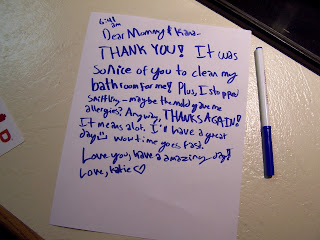 6:41
am
Dear Mommy & Kiana-
THANK YOU! It was
so nice of you to clean my
bathroom for me! Plus, I stopped
sniffling - maybe the mold gave me
allergies? Anyway, THANKS AGAIN!
It means alot. I'll have a great
day! wow time goes fast.
Love you, have a amazing day!
Love, Katie